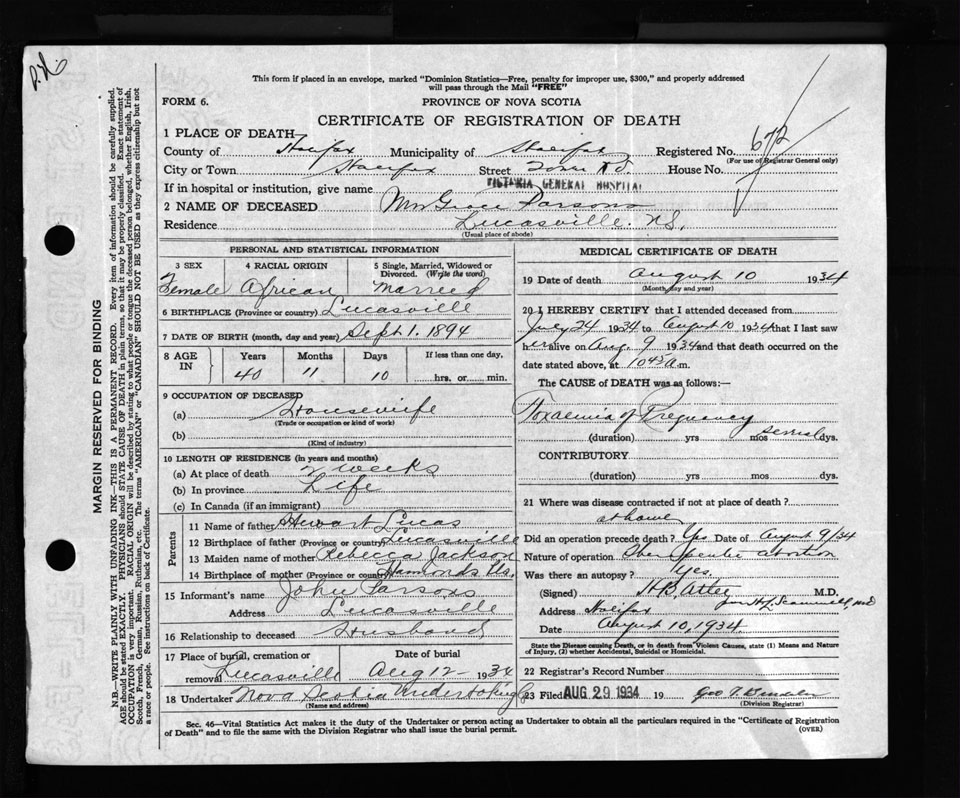 This form if placed in an envelope, marked "Dominion Statistics—Free, penalty for improper use, $300," and properly addressed
will pass through the Mail "FREE"
FORM 6.
PROVINCE OF NOVA SCOTIA
CERTIFICATE OF REGISTRATION OF DEATH
1 PLACE OF DEATH
County of Halifax Municipality of Halifax Registered No. 672
(For use of Registrar General only)
City or Town Halifax Street Tower Rd. House No.
If in hospital or institution, give name VICTORIA GENERAL HOSPITAL
2 NAME OF DECEASED Mrs Grace Parsons
Residence Lucasville N.S.
(Usual place of abode)
PERSONAL AND STATISTICAL INFORMATION
3 SEX 4 RACIAL ORIGIN 5 Single, Married, Widowed or
Divorced. (Write the word)
Female African Married
6 BIRTHPLACE (Province or country) Lucasville
7 DATE OF BIRTH (month, day and year) Sept 1. 1894
8 AGE IN Years Months Days If less than one day,
40 11 10 hrs. or min.
9 OCCUPATION OF DECEASED
(a) Housewife
(Trade or occupation or kind of work)
(b)
(Kind of industry)
10 LENGTH OF RESIDENCE (in years and months)
(a) At place of death 2 weeks
(b) In province Life
(c) In Canada (if an immigrant)
Parents
11 Name of father Stewart Lucas
12 Birthplace of father (Province or country) Lucasville
13 Maiden name of mother Rebecca Jackson
14 Birthplace of mother (Province or country)
15 Informant's name John Parsons
Address Lucasville
16 Relationship to deceased Husband
17 Place of burial, cremation or Date of burial
removal Lucasville Aug 12 1934
18 Undertaker Nova Scotia Undertaking
(Name and address)
MEDICAL CERTIFICATE OF DEATH
19 Date of death August 10 1934
(Month, day and year)
20 I HEREBY CERTIFY that I attended deceased from
July 24 1934 to August 10 1934 that I last saw
her alive on Aug. 9 1934 and that death occurred on
date stated above, at 10 45 a m.
The CAUSE OF DEATH was as follows:
Toxaemia of Pregnancy
(duration) yrs mos several dys.
CONTRIBUTORY
(duration) yrs mos dys.
21 Where was disease contracted if not at place of death?
at home
Did an operation precede death? Yes Date of August 9/34
Nature of operation Therapeutic abortion
Was there an autopsy? Yes.
(Signed) H.B. Atlee M.D.
Address Halifax
Date August 10, 1934
State the Disease causing Death, or in death from Violent Causes, state (1) Means and Nature
of Injury, (2) whether Accidental, Suicidal or Homicidal.
22 Registered Record Number
23 Filed AUG 29 1934 19
(Division Registrar)
Sec. 46—Vital Statistics Act makes it the duty of the Undertaker or person acting as Undertaker to obtain all the particulars required in the "Certificate of Registration
of Death" and to file the same with the Division Registrar who shall issue the burial permit.
(OVER)
MARGIN RESERVED FOR BINDING
N.B.—WRITE PLAINLY WITH UNFADING INK—THIS IS A PERMANENT RECORD. Every item of information should be carefully supplied.
AGE should be stated EXACTLY. PHYSICIANS should STATE CAUSE OF DEATH in plain terms, so that it may be properly classified. Exact statement of
OCCUPATION is very important. RACIAL ORIGIN will be described by stating to what people or tongue the deceased person belonged, whether English, Irish,
Scotch, French, German, Russian, Ruthenian, etc. The terms "AMERICAN" or "CANADIAN" SHOULD NOT BE USED as they express citizenship but not
a race or people. See instructions on back of Certificate.